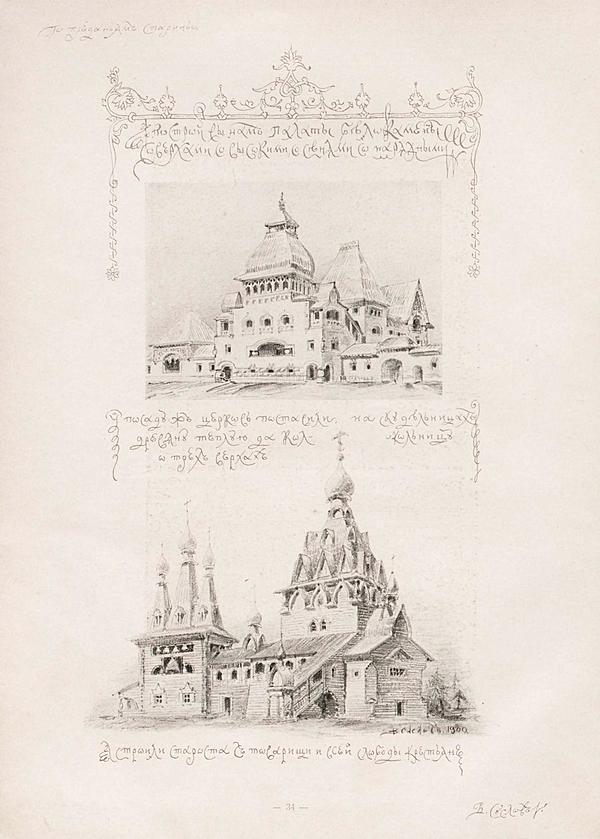 По преданьямъ Старины
Построй вы намъ палаты бѣлокаменны
Со верхами с высокими с сѣнями со нарядными
У посадѣхъ церковь поставили, на скудѣльницахъ
древяну теплую да кол- кольницу
о трехъ верхахъ
1900
А строили староста съ товарищи и всей слободы крестьяне
— 34 —